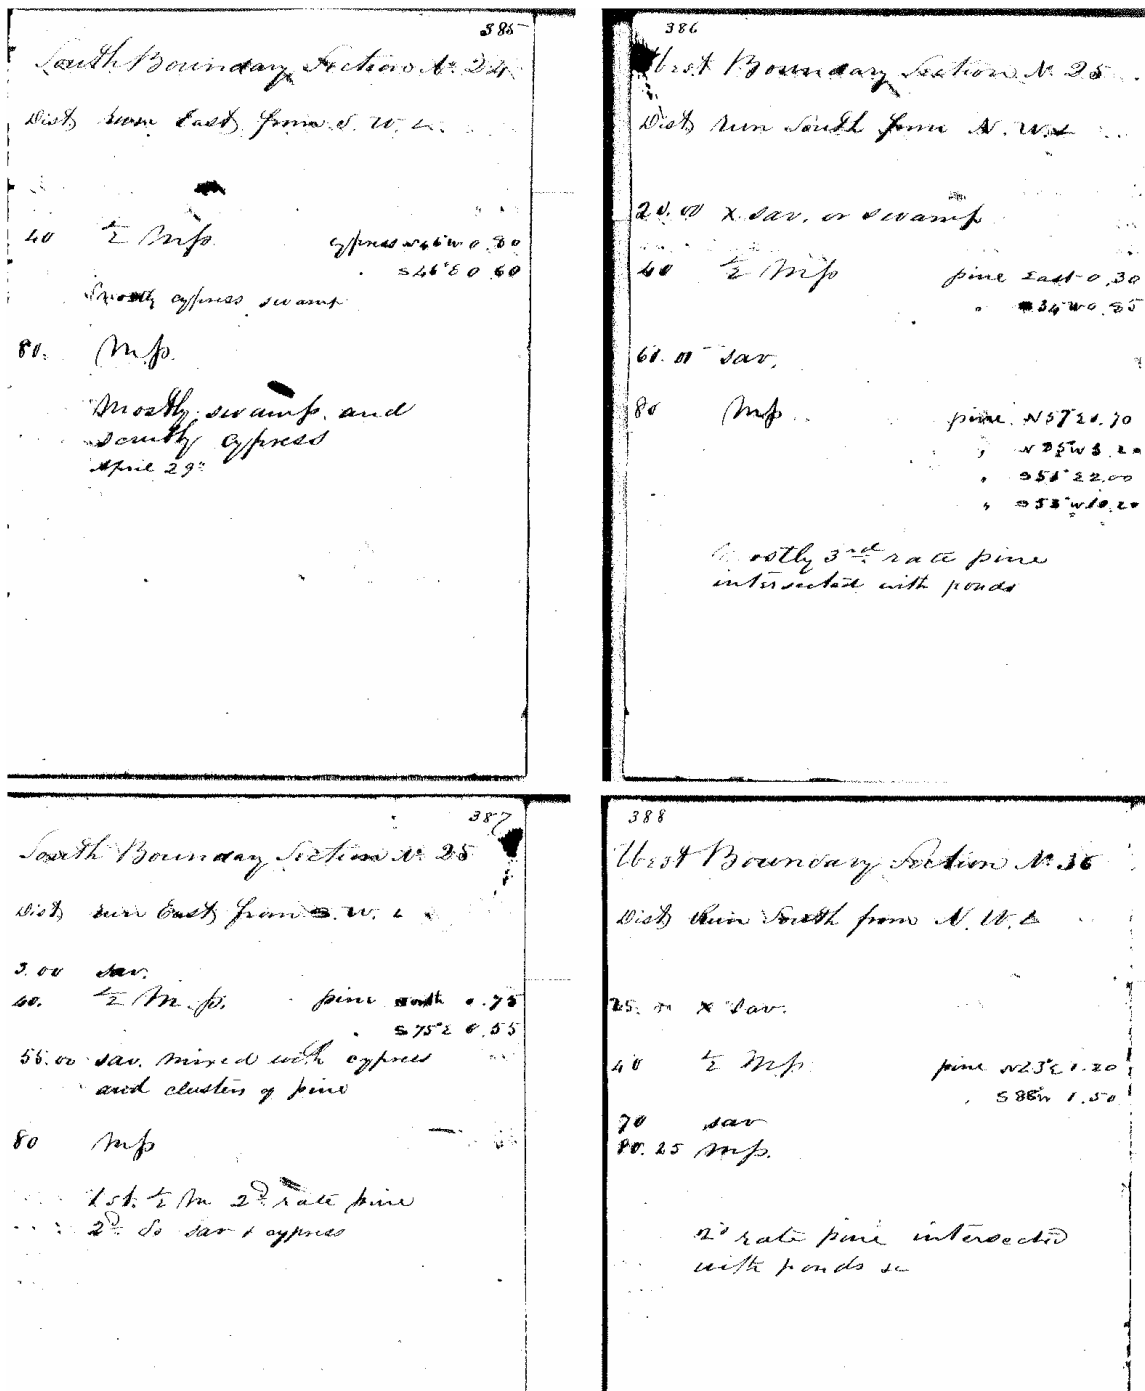 385
South Boundary Section No 24
Dist run East from S. W. L.
40 ½ M.p. cypress N46°W 0.80
" S46°E 0.60
Mostly cypress swamp
80. M.p.
Mostly swamp and
scrubby cypress
April 29th
386
West Boundary Section No 25
Dist run South from N. W. L
20.00 x sav. or swamp
40 ½ M.p. pine East 0.30
" 34 W 0.85
60.00 sav.
80 M.p. pine N57°E 0.70
" N35°W 3.20
" S51°E 2.00
" S53°W 10.20
Mostly 3rd rate pine
intersected with ponds
387
South Boundary Section No 25
Dist run East from S. W. L
3.00 sav.
40. ½ M.p. pine 0.75
" S75°E 0.55
55.00 sav. mixed with cypress
and clusters of pine
80 M.p.
1st ½ M 2d rate pine
2d Do sav & cypress
388
West Boundary Section No 36
Dist Run South from N. W. L
25.00 x sav.
40 ½ M.p. pine N23°E 1.20
" S88W 1.50
70 sav
80.25 M.p.
2d rate pine intersected
with ponds &c